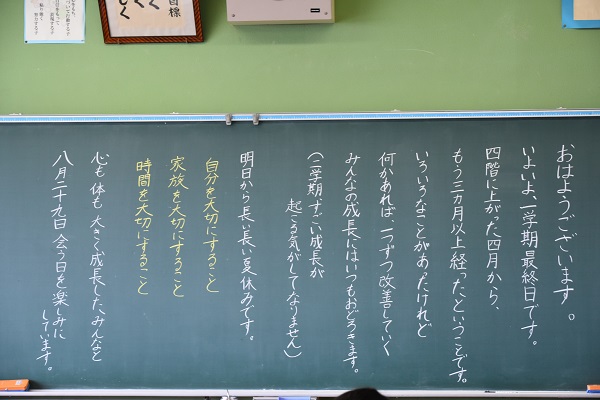 おはようございます。
いよいよ、一学期最終日です。
四階に上がった四月から、
もう三カ月以上経ったということです。
いろいろなことがあったけれど
何かあれば、一つずつ改善していく
みんなの成長にはいつもおどろきます。
(二学期、すごい成長が
起こる気がしてなりません)
明日から長い長い夏休みです。
自分を大切にすること
家族を大切にすること
時間を大切にすること
心も体も大きく成長したみんなと
八月二十九日会う日を楽しみに
しています。
目標